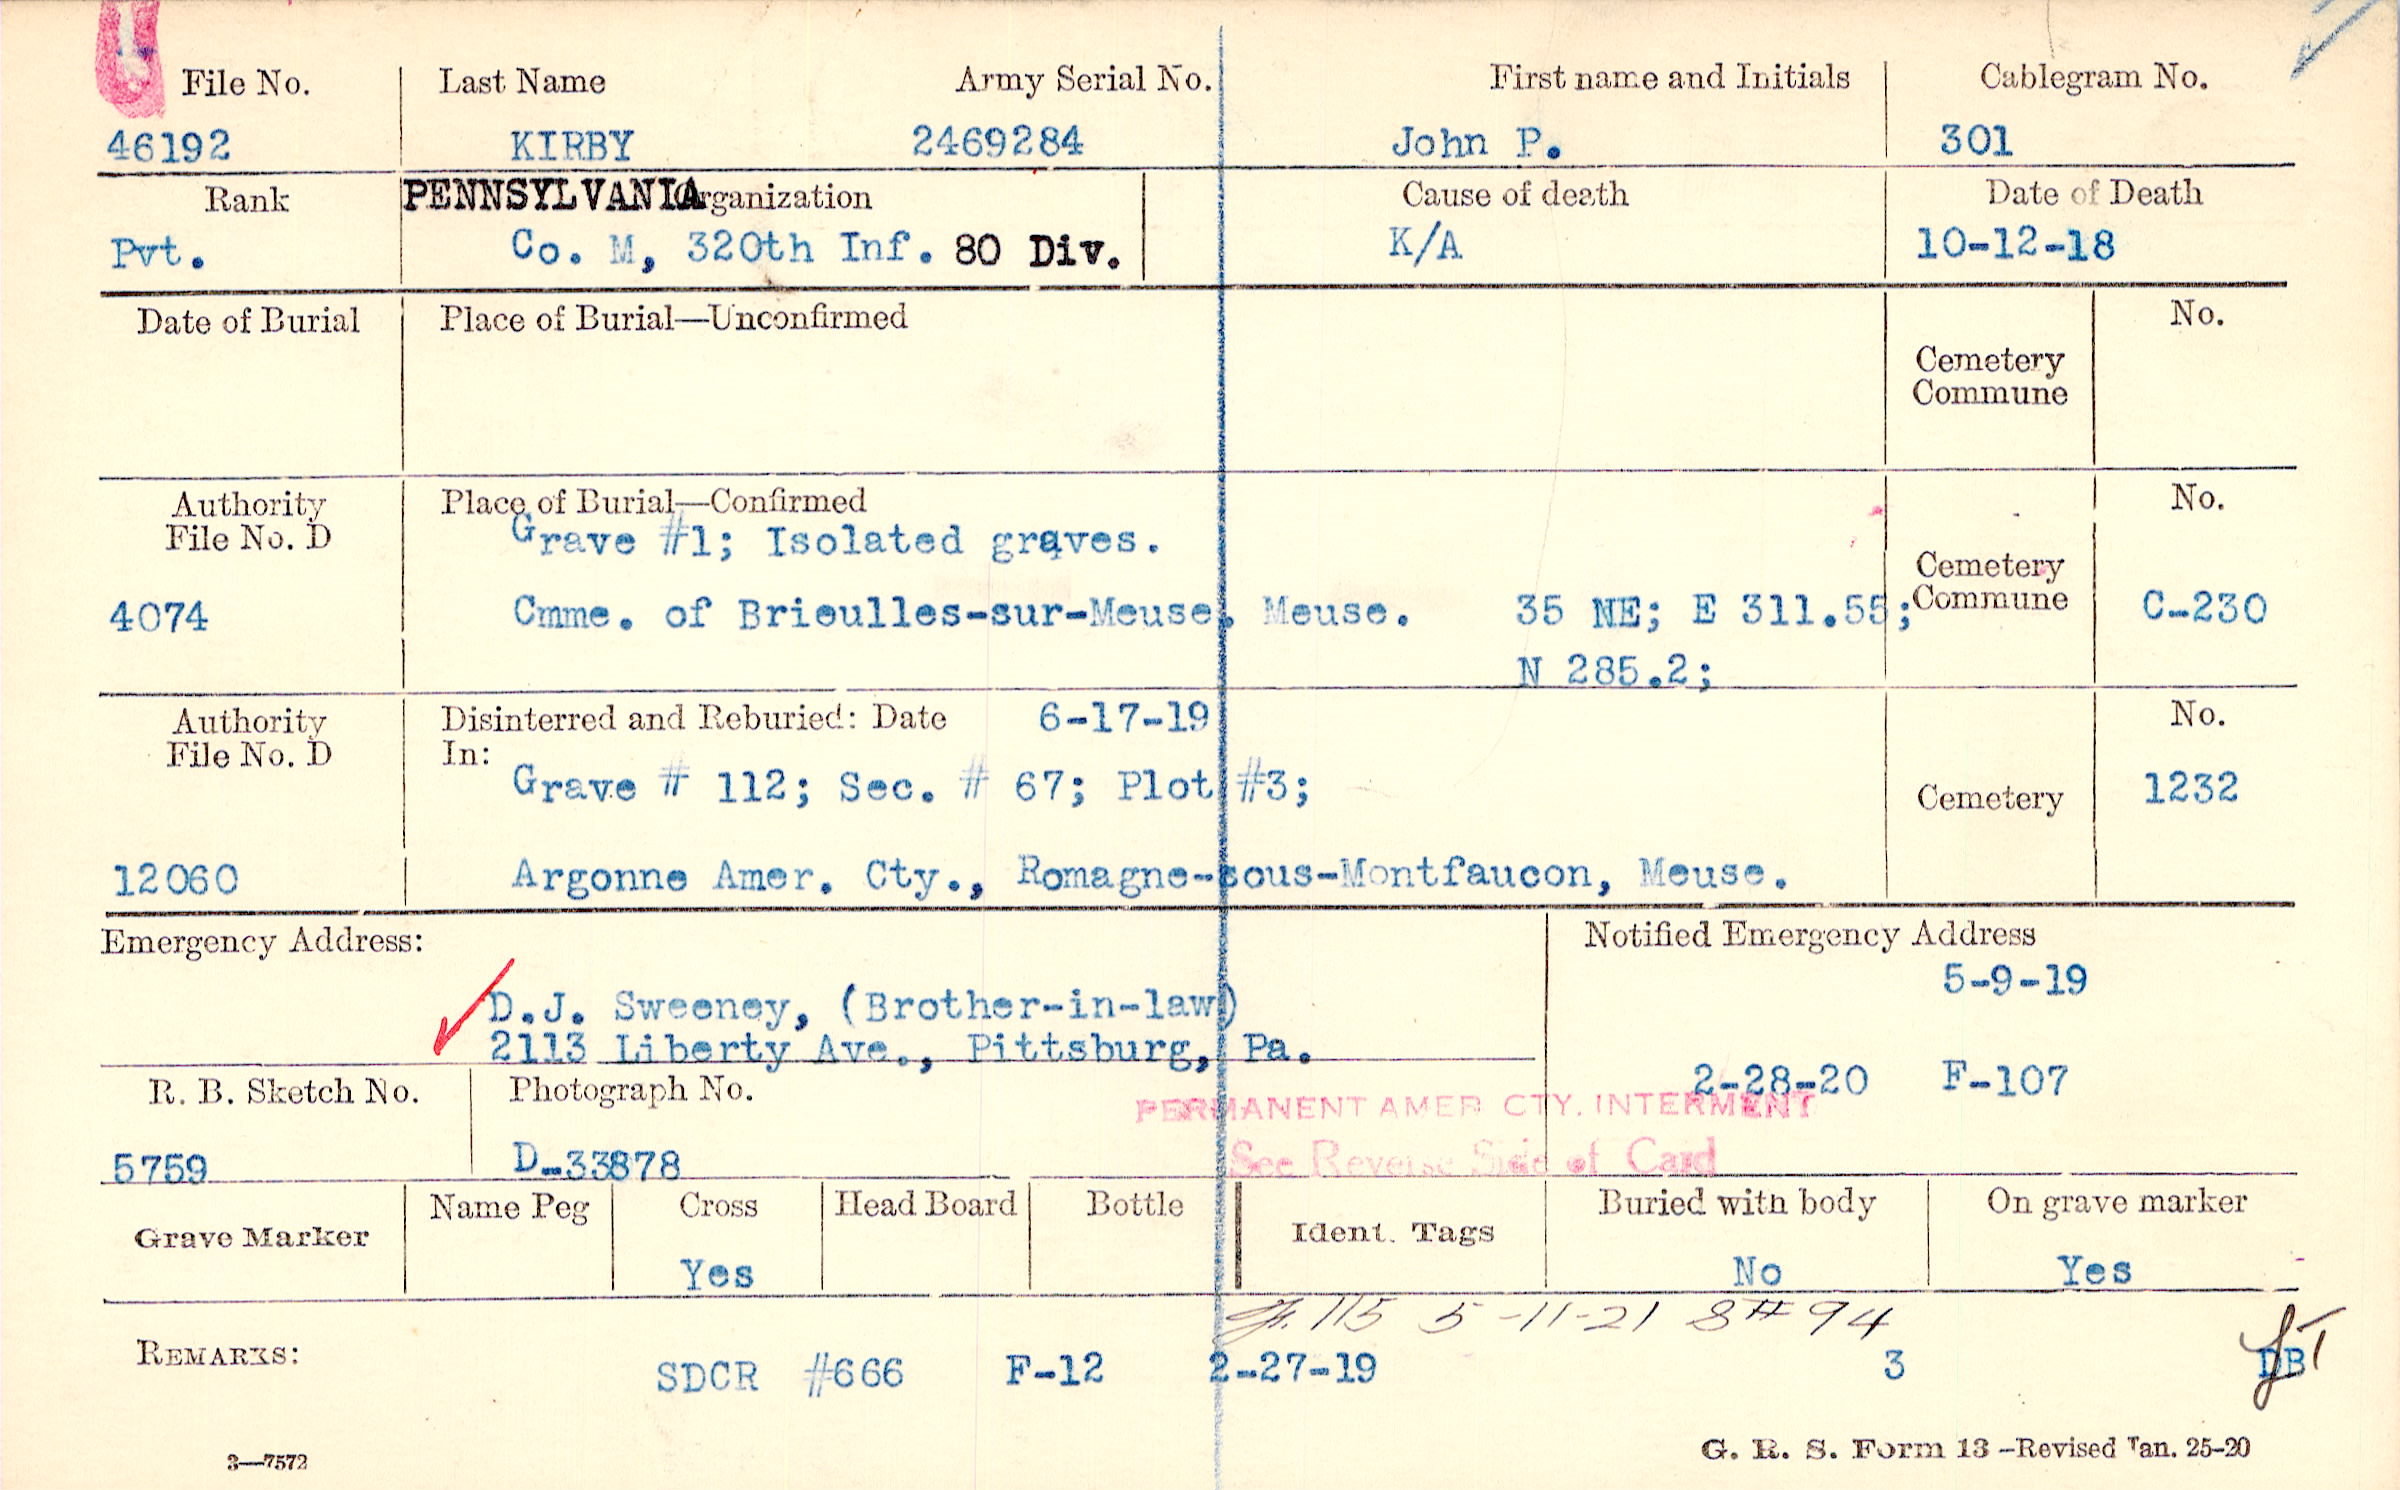 File No. Last Name Army Serial No. First name and Initials Cablegram No.
46192 KIRBY 2469284 John P. 301
Rank PENNSYLVANIA Organization Cause of death Date of Death
Pvt. Co. M, 320th Inf. 80 Div. K/A 10-12-18
Date of Burial Place of Burial—Unconfirmed No.
Cemetery
Commune
Authority Place of Burial—Confirmed No.
File No. D Grave #1; Isolated graves.
Cemetery
4074 Cmme. of Brieulles-sur-Meuse, Meuse. 35 NE; E 311.55; Commune C-230
N 285.2;
Authority Disinterred and Reburied: Date 6-17-19 No.
File No. D In:
Grave # 112; Sec. # 67; Plot #3; Cemetery 1232
12060 Argonne Amer. Cty., Romagne-sous-Montfaucon, Meuse.
Emergency Address: Notified Emergency Address
5-9-19
D.J. Sweeney, (Brother-in-law)
2113 Liberty Ave., Pittsburg, Pa.
R. B. Sketch No. Photograph No. 2-28-20 F-107
PERMANENT AMER CTY. INTERMENT
5759 D-33878 See Reverse Side of Card
Grave Marker Name Peg Cross Head Board Bottle Ident. Tags Buried with body On grave marker
Yes No Yes
115 5-11-21 8# 94
REMARKS: SDCR #666 F-12 2-27-19 3 DB
3—7572 G. R. S. Form 13—Revised Jan. 25-20